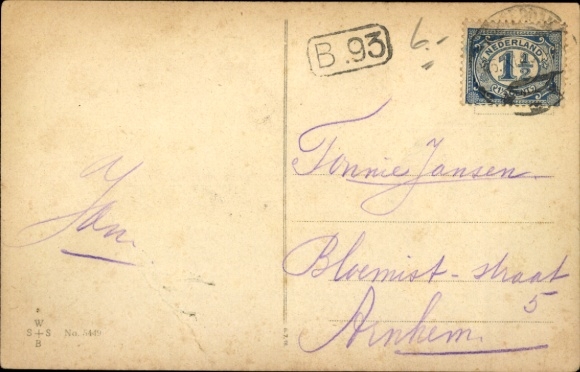 B.93
6.-
NEDERLAND
1 1/2
CENT
Tonnie Jansen.
Jan.
Bloemist-straat
5
Arnhem.
W
S+S No. 5449
B